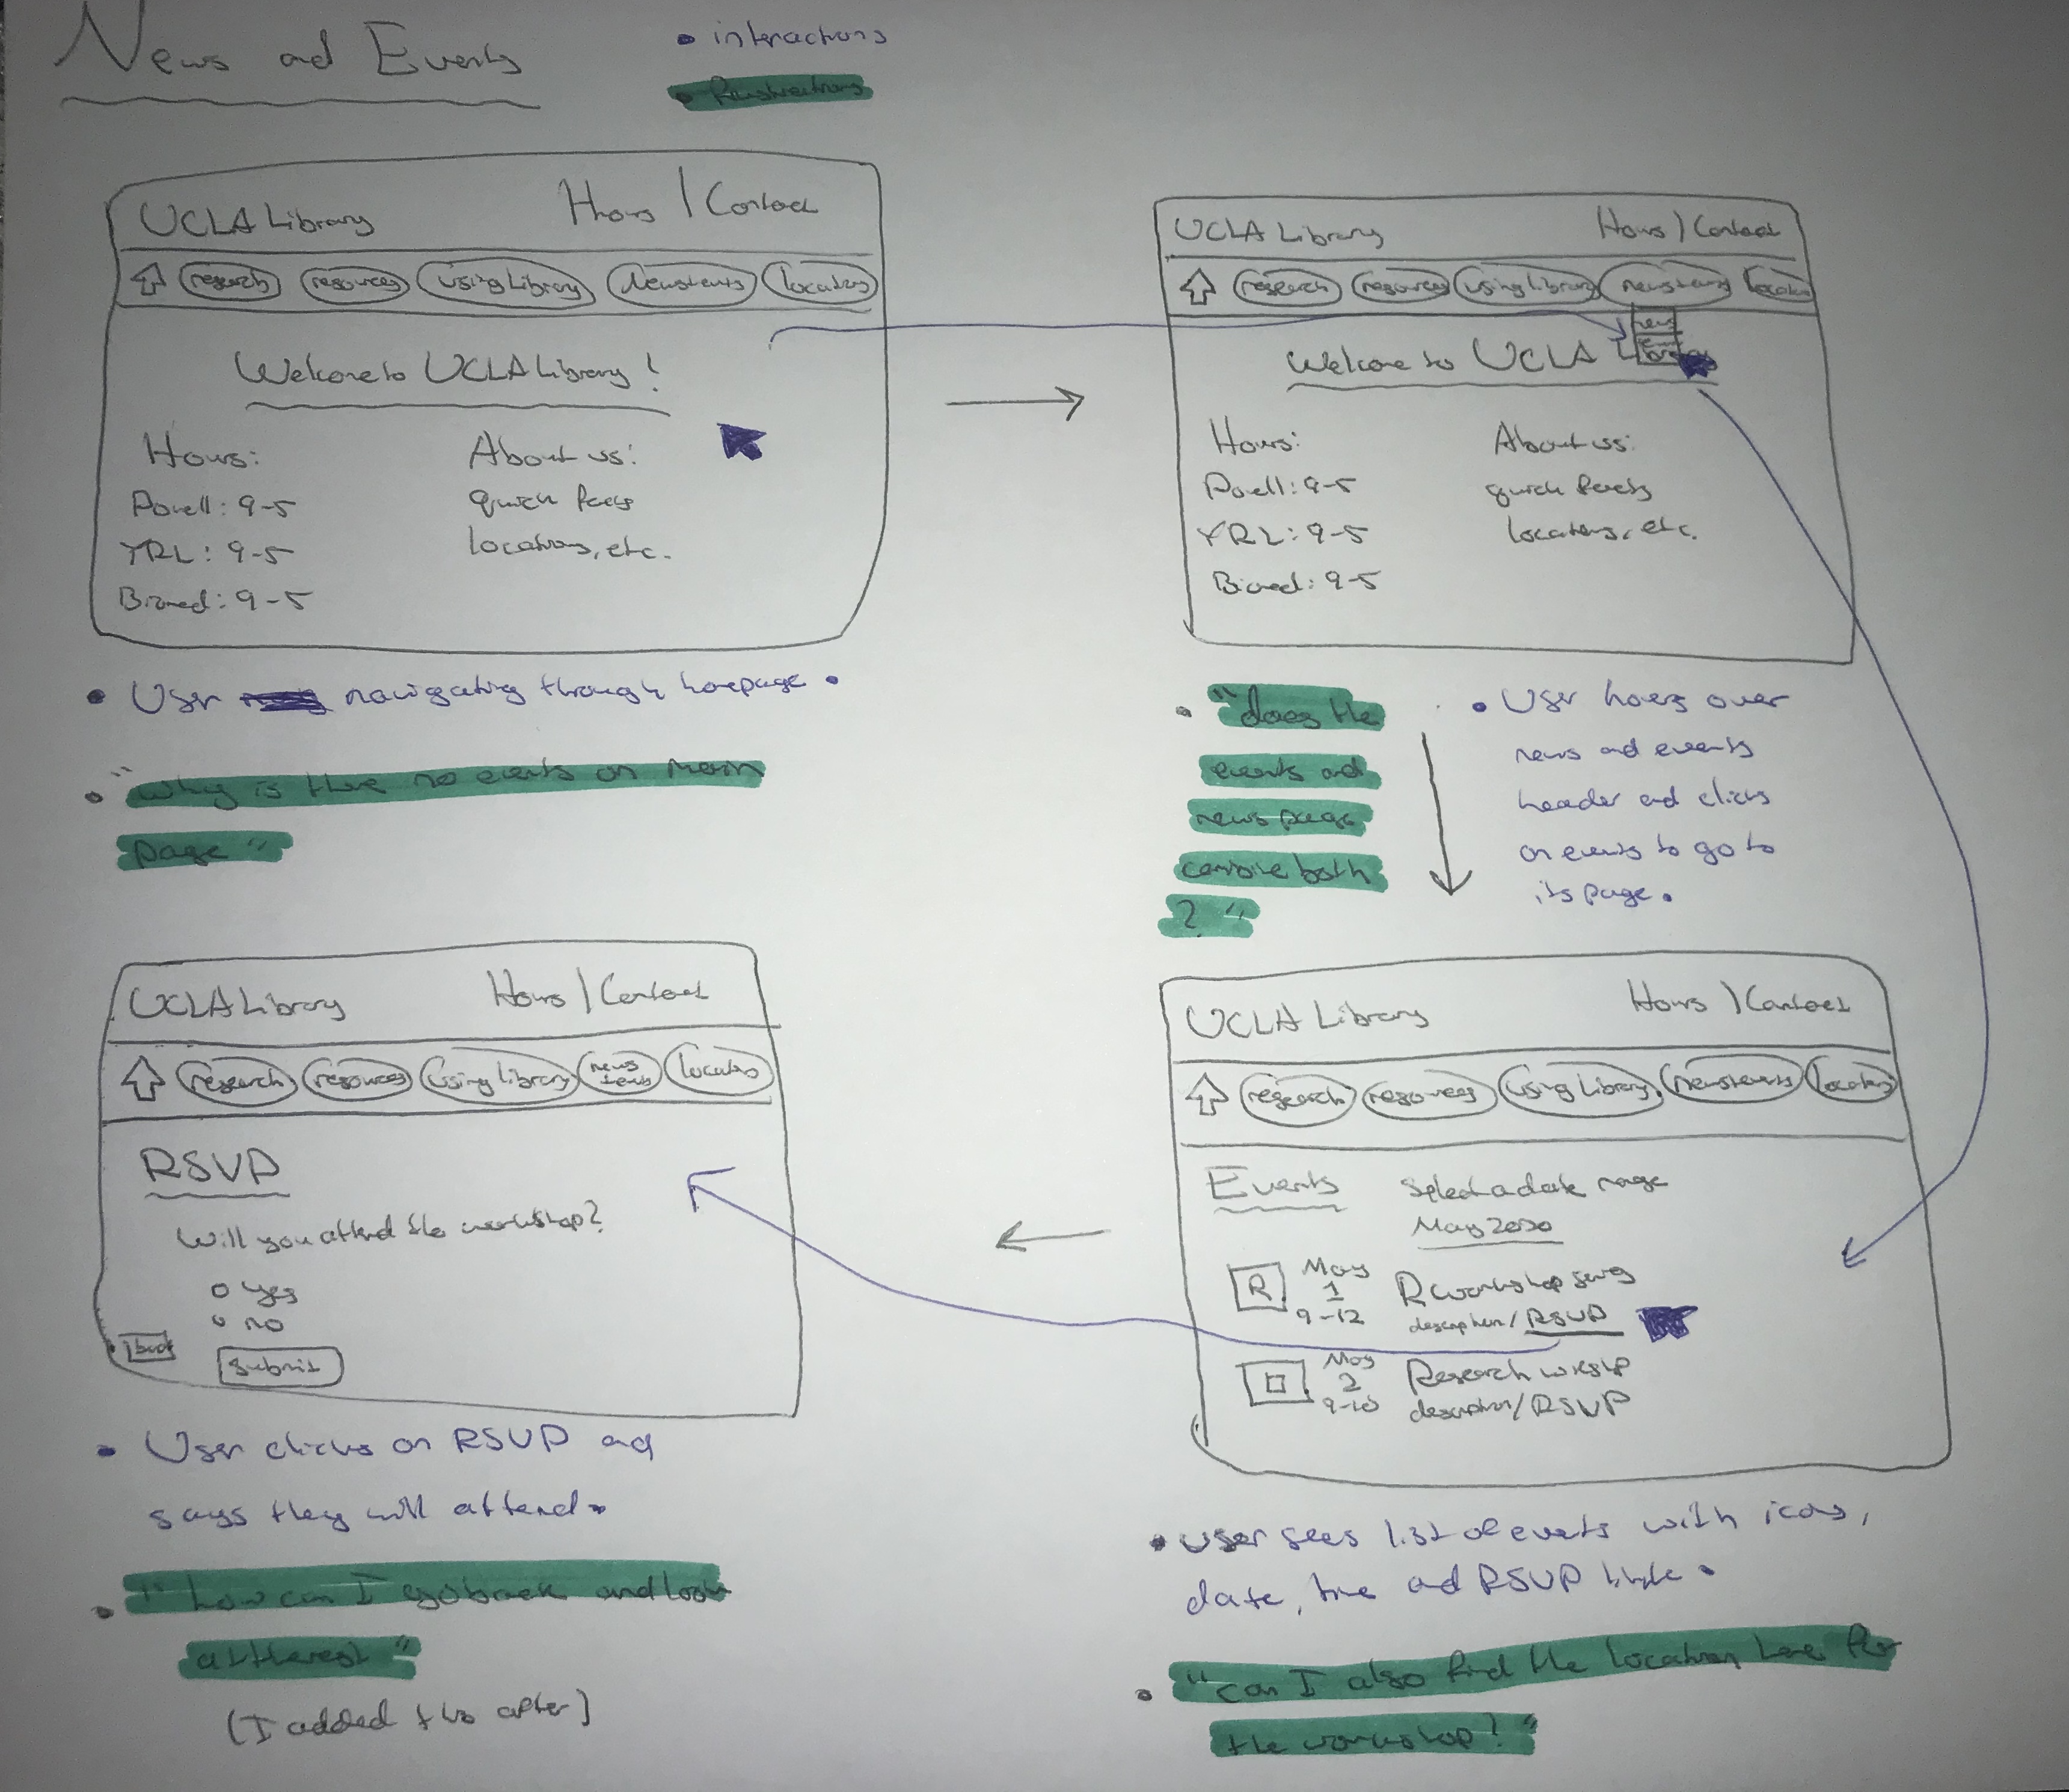 News and Events
• interactions
UCLA Library Hours | Contact
research resources using Library News+events locations
Welcome to UCLA Library!
Hours: About us:
Powell: 9-5 quick facts
YRL: 9-5 locations, etc.
Biomed: 9-5
• User navigating through homepage.
• "why is there no events on main
page"
UCLA Library Hours | Contact
research resources using library news+events locations
news
Welcome to UCLA
Hours: About us:
Powell: 9-5 quick facts
YRL: 9-5 locations, etc.
Biomed: 9-5
• "does the
events and
news page
combine both
?"
• User hovers over
news and events
header and clicks
on events to go to
its page.
UCLA Library Hours | Contact
research resources using library news+events locations
Events Select a date range
May 2020
R May 1 9-12 R workshop series
description/RSVP
May 2 9-10 Research wrkshp
description/RSVP
• User sees list of events with icons,
date, time and RSVP link.
• "can I also find the location here for
the workshop?"
UCLA Library Hours | Contact
research resources using library news events locations
RSVP
Will you attend the workshop?
o yes
o no
back
submit
• User clicks on RSVP and
says they will attend.
• "how can I go back and look
at the rest"
(I added this after)